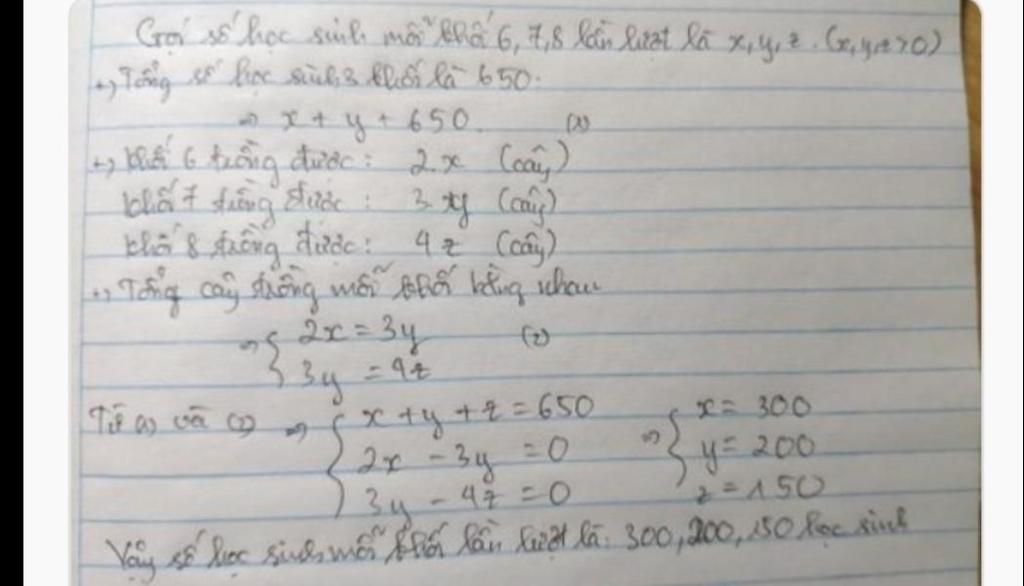 Gọi số học sinh mỗi khối 6, 7, 8 lần lượt là x, y, z. (x,y,z>0)
+) Tổng số học sinh 3 khối là 650.
=> x + y + 650. (1)
+) Khối 6 trồng được: 2.x (cây)
Khối 7 trồng được: 3.y (cây)
Khối 8 trồng được: 4z (cây)
+) Tổng cây trồng mỗi khối bằng nhau
=> { 2x = 3y (2)
3y = 4z
Từ (1) và (2) => { x + y + z = 650 => { x = 300
2x - 3y = 0 y = 200
3y - 4z = 0 z = 150
Vậy số học sinh mỗi khối lần lượt là: 300, 200, 150 học sinh